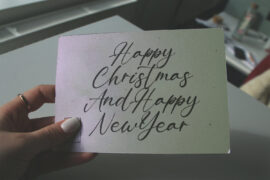 Happy
Christmas
And Happy
New Year